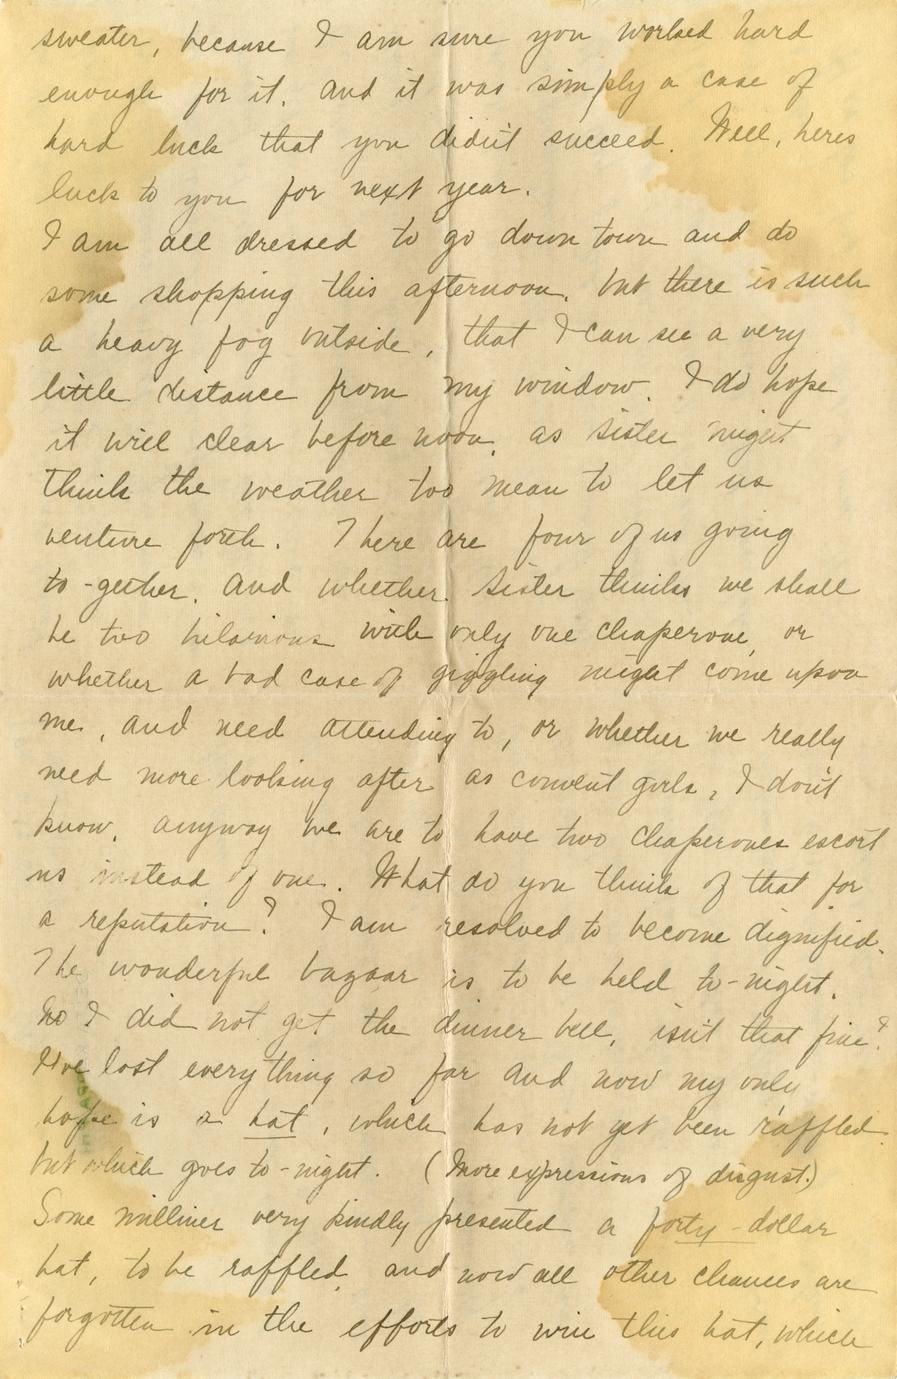 sweater, because I am sure you worked hard
enough for it. and it was simply a case of
hard luck that you didn't succeed. Well, heres
luck to you for next year.
I am all dressed to go down town and do
some shopping this afternoon. but there is such
a heavy fog outside, that I can see a very
little distance from my window. I do hope
it will clear before noon, as Sister might
think the weather too mean to let us
venture forth. There are four of us going
to-gether. and whether Sister thinks we shall
be too hilarious with only one chaperone, or
whether a bad case of giggling might come upon
me, and need attending to, or whether we really
need more looking after as convent girls, I don't
know. anyway we are to have two chaperones escort
us instead of one. What do you think of that for
a reputation? I am resolved to become dignified.
The wonderful bazaar is to be held to-night.
No I did not get the dinner bell, isn't that fine?
I've lost everything so far and now my only
hope is a hat, which has not yet been raffled
but which goes to-night. (More expressions of disgust.)
Some milliner very kindly presented a forty-dollar
hat, to be raffled, and now all other chances are
forgotten in the efforts to win this hat, which